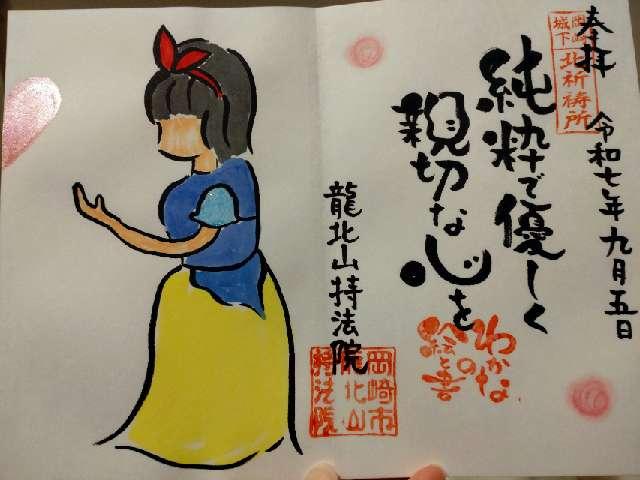 奉拝
令和七年九月五日
岡崎
城下
北祈祷所
純粋で優しく
親切な心を
わかな
の
絵と書
龍北山持法院
岡崎市
龍北山
持法院